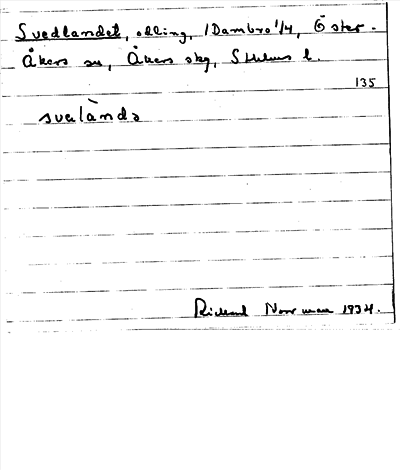 Svedlandet, odling, /Dambro 1/4, Öster-
Åkers sn, Åkers skg, Sthlms l.
135
sveĺànda
Rickard Norrman 1934.